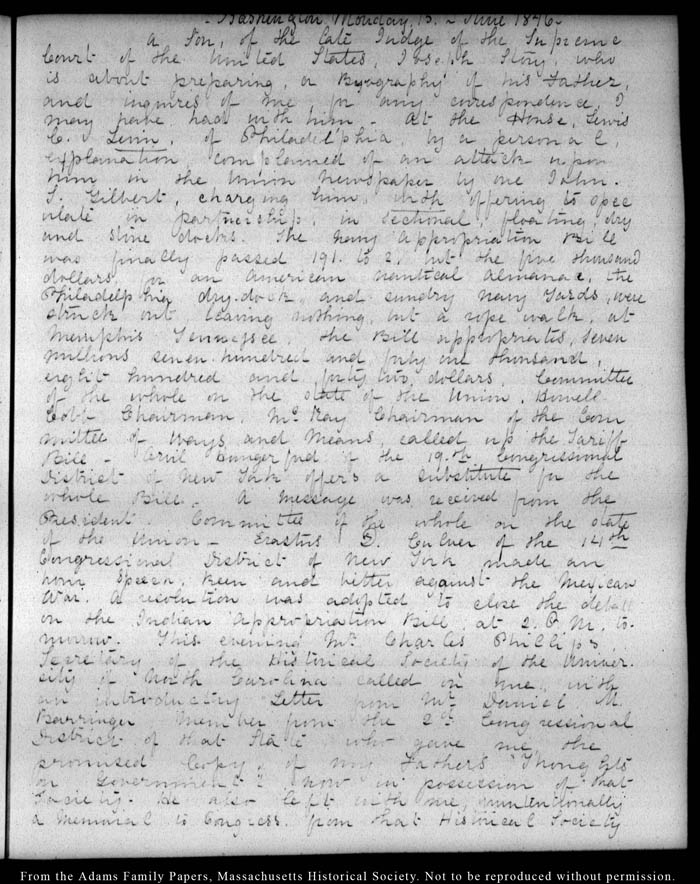 - Washington Monday, 15. - June 1846 -
A Son, of the late Judge of the Supreme
Court of the United States, Joseph Story, who
is about preparing, a Byography of his Father,
and inquires of me, for any correspondence, I
may have had with him - At the House, Lewis
C. Levin, of Philadelphia, by a personal,
explanation, complained of an attack upon
him in the Union newspaper by one John.
S. Gilbert, charging him, with offering to spec
ulate in partnership, in sectional, floating, dry
and stone docks. The Navy Appropriation Bill
was finally passed 191. to 2. but the five thousand
dollars for an American nautical almanac, the
Philadelphia dry-dock, and sundry navy Yards, were
struck out, leaving nothing, but a rope walk, at
Memphis Tennessee. The Bill appropriates, seven
millions seven hundred and forty one thousand,
eight hundred and forty two, dollars. Committee
of the whole on the state of the Union, Howell
Cobb Chairman. McKay Chairman of the Com
mittee of Ways and Means, called up the Tariff
Bill - Orvil Hungerford of the 19.th Congressional
District of New York offers a substitute for the
whole Bill - A message was received from the
President. Committee of the whole on the state
of the Union - Erastus D. Culver of the 14th
Congressional District of New York made an
hour Speech, keen and bitter against the Mexican
War. A resolution was adopted to close the debate
on the Indian Appropriation Bill at 2. P.M. to-
morrow. This evening Mr. Charles Phillips,
Secretary of the Historical Society of the Univer-
sity of North Carolina called on me, with
an introductory Letter from Mr Daniel M.
Barringer Member from the 2d Congressional
District of that State who gave me, the
promised Copy, of my Fathers "Thoughts
on Government" now in possession of that
Society. He also left with me, unintentionally
a Memorial to Congress from that Historical Society
From the Adams Family Papers, Massachusetts Historical Society. Not to be reproduced without permission.